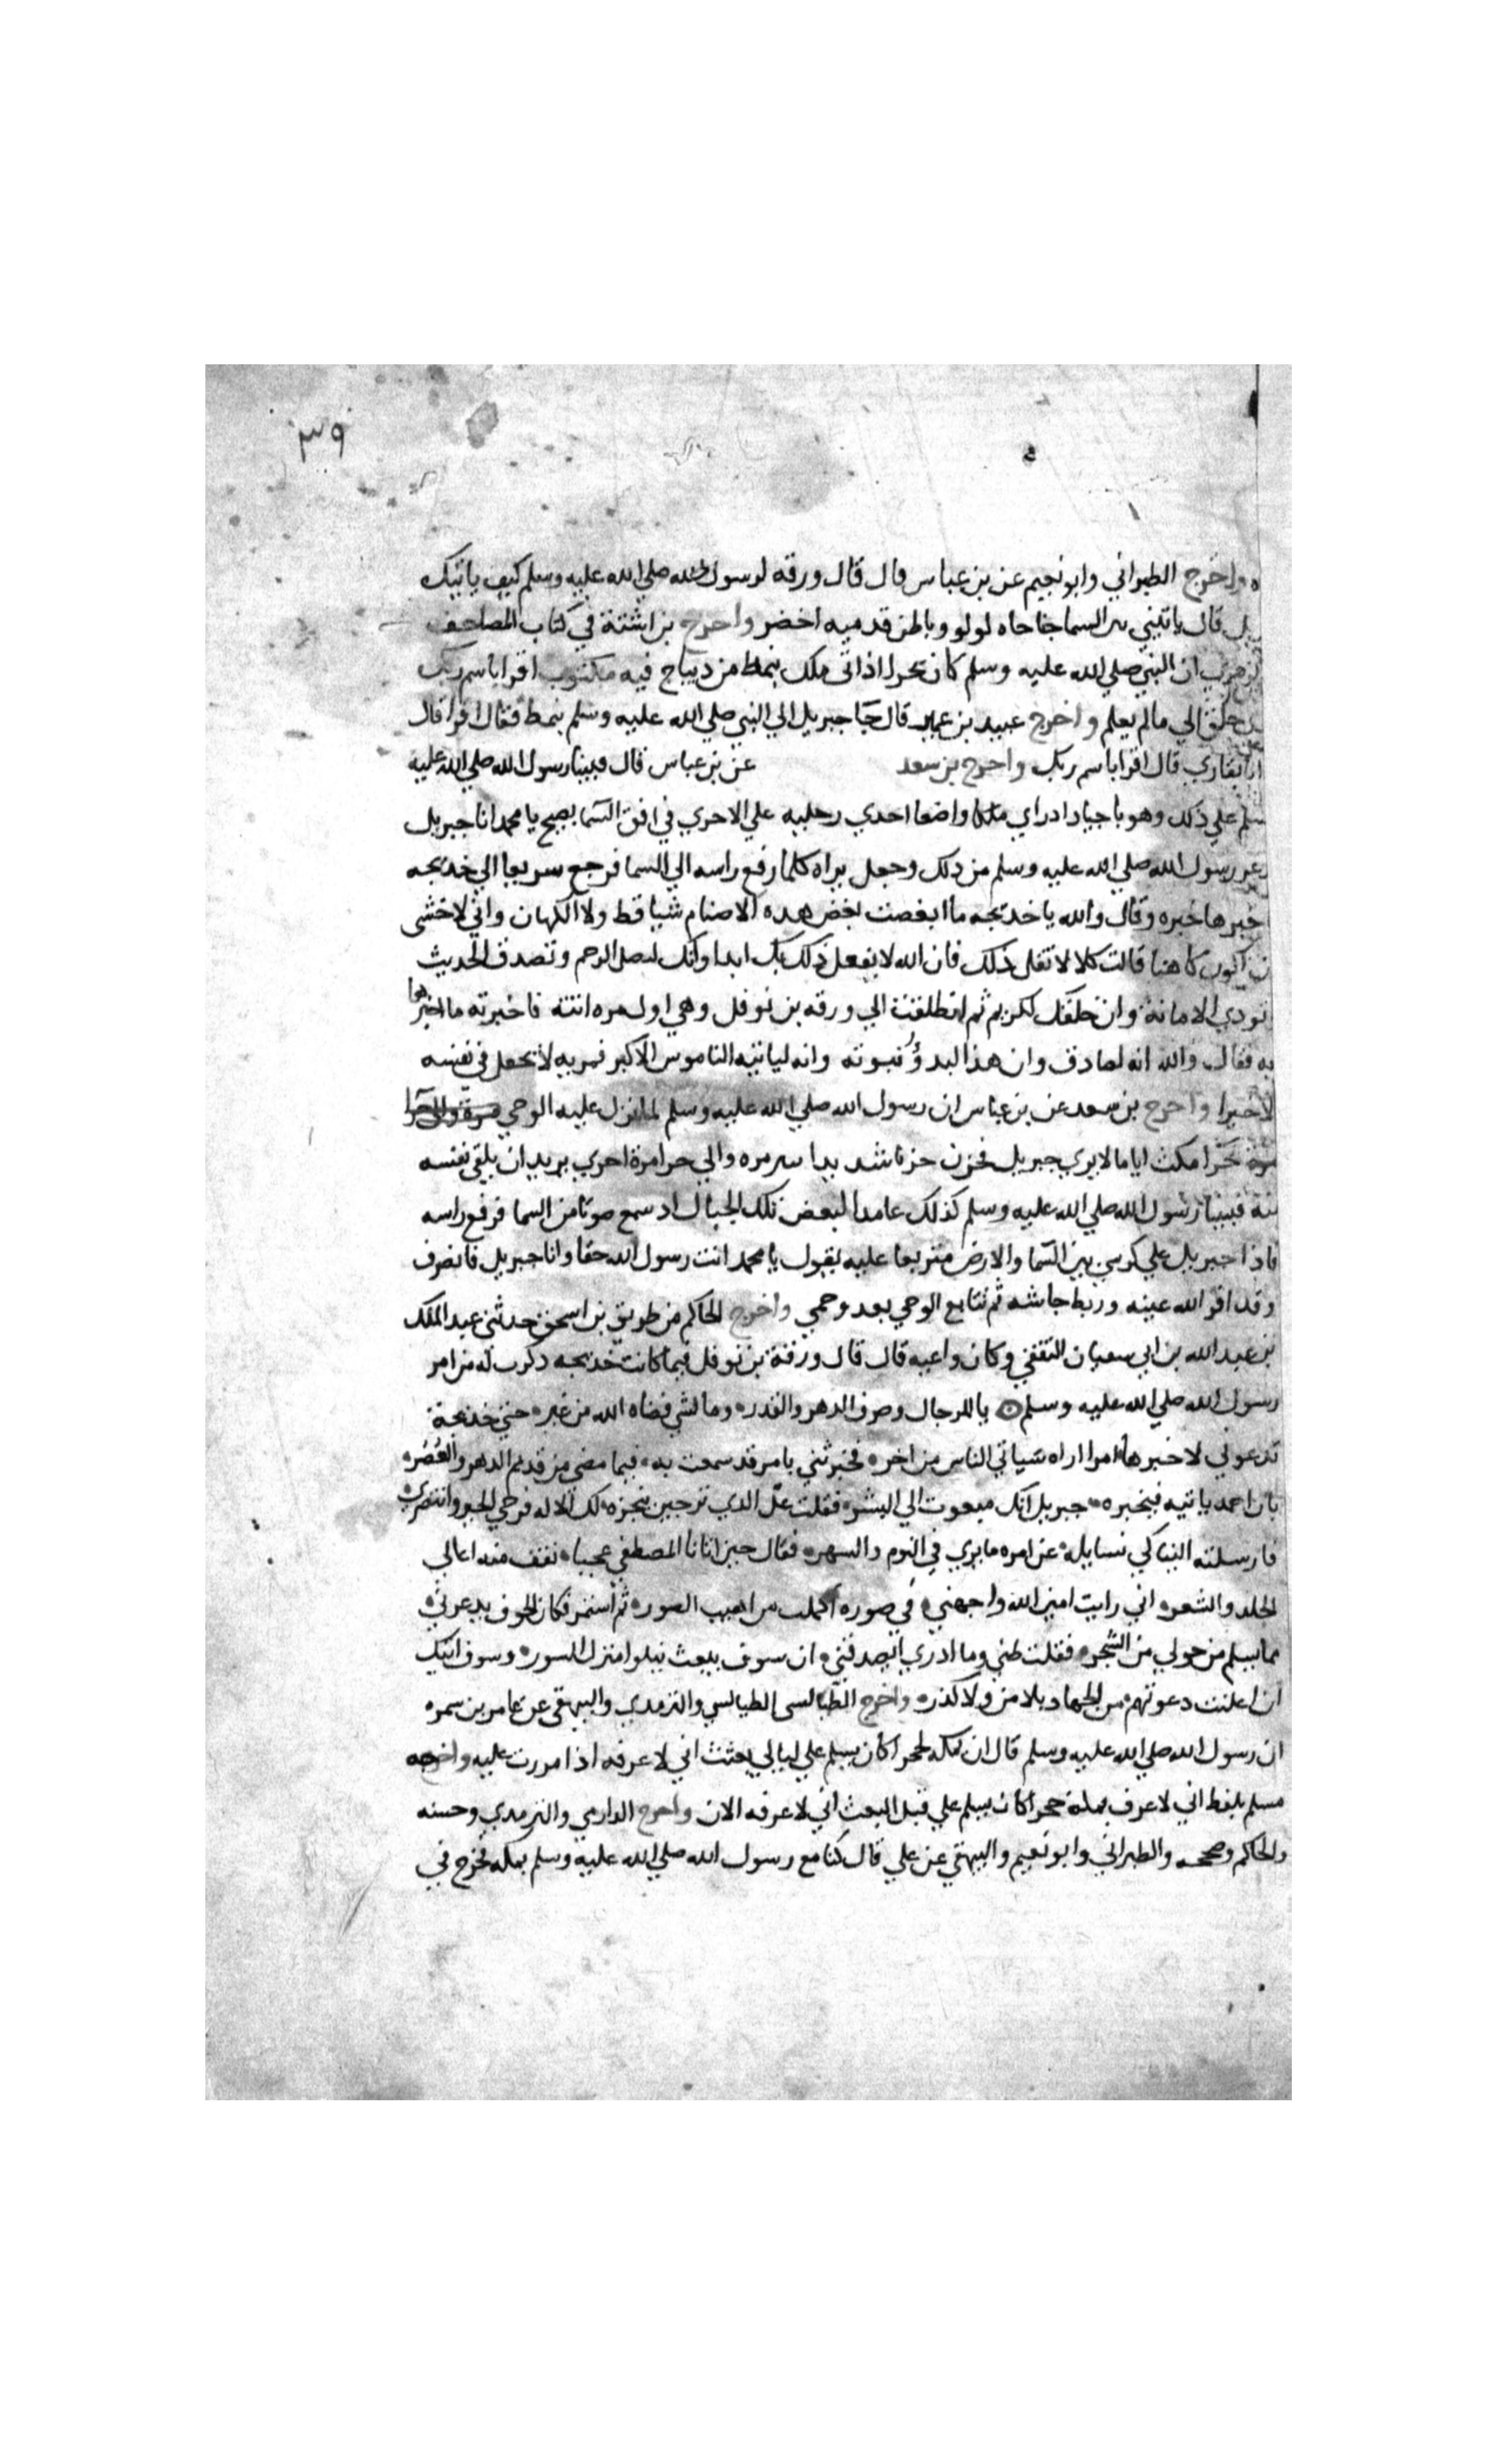 ٣٩
واخرج الطبراني وابو نعيم عن بن عباس قال قال ورقه لرسول الله صلي الله عليه وسلم كيف ياتيك
قال ياتيني من السما جناحاه لولو وباطن قدميه اخضر واخرج بن اشتة في كتاب المصاحف
ان النبي صلي الله عليه وسلم كان بحرا اذ اتى ملك بنمط من ديباج فيه مكتوب اقرا باسم ربك
خلق الي مالم يعلم واخرج عبيد بن عمير قال جا جبريل الي النبي صلي الله عليه وسلم بنمط فقال اقرا قال
بقاري قال اقرا باسم ربك واخرج بن سعد عن بن عباس قال فبينا رسول الله صلي الله عليه
علي ذلك وهو باجياد اد راي ملكا واضعا احدي رجليه علي الاخري في افق السما يصيح يا محمد انا جبريل
رسول الله صلي الله عليه وسلم من ذلك وجعل يراه كلما رفع راسه الي السما فرجع سريعا الي خديجه
خبرها خبره وقال والله يا خديجه ما ابغضت بغض هده الاصنام شيا قط ولا الكهان واني لاخشى
اكون كاهنا قالت كلا لا تقل ذلك فان الله لا يفعل ذلك بك ابدا وانك لتصل الرحم وتصدق الحديث
تودي الامانة وان خلقك لكريم ثم انطلقت الي ورقه بن نوفل وهي اول مره اتته فاخبرته ما اخبرها
به فقال والله انه لصادق وان هذا لبدؤ نبوته وانه لياتيه الناموس الاكبر فمريه لا يجعل في نفسه
الا خيرا واخرج بن سعد عن بن عباس ان رسول الله صلي الله عليه وسلم لما نزل عليه الوحي
بحرا مكث اياما لا يري جبريل فحزن حزنا شديدا مره والي حرا مرة اخري يريد ان يلقي نفسه
منه فبينا رسول الله صلي الله عليه وسلم كذلك عامدا لبعض تلك الجبال اد سمع صوتا من السما فرفع راسه
فاذا جبريل علي كرسي بين السما والارض متربعا عليه يقول يا محمد انت رسول الله حقا وانا جبريل فانصرف
وقد اقر الله عينه وربط جاشه ثم تتابع الوحي بعد وحمي واخرج الحاكم من طريق بن اسحق حدثني عبد الملك
بن عبد الله بن ابي سفيان الثقفي وكان واعيه قال قال ورقة بن نوفل فيما كانت خديجه دكرت له من امر
رسول الله صلي الله عليه وسلم يا للرجال وصرف الدهر والقدر وما لشي قضاه الله من غير حتي خديجة
تدعوني لاخبرها امرا اراه سياتي الناس من اخر فخبرتني بامر قد سمعت به فيما مضى من قديم الدهر والعصر
بان احمد ياتيه فيخبره جبريل انك مبعوت الي البشر فقلت عل الذي ترجين ينجزه لك الاله فرجي الخير وانتظري
فارسلته الينا كي نسايله عن امره ما يري في النوم والسهر فقال حين اتانا المصطفي عجبا تقف منه اعالي
الجلد والشعر اني رايت امين الله واجهني في صوره اكملت من اهيب الصور ثم استمر فكان الخوف يدعرني
مما يسلم من حولي من الشجر فقلت ظني وما ادري ايصدقني ان سوف يبعث يتلوا منزل السور وسوف اتيك
ان اعلنت دعوتهم من الجهاد بلا من ولا كدر واخرج الطيالسى الطيالسي والترمدي والبيهقي عن عامر بن سمره
ان رسول الله صلي الله عليه وسلم قال ان بمكه لحجرا كان يسلم علي ليالي بعثت اني لاعرفه اذا مررت عليه واخرجه
مسلم بلفظ اني لاعرف بمكة حجرا كان يسلم علي قبل البعث اني لاعرفه الان واخرج الدارمي والترمدي وحسنه
والحاكم وصححه والطبراني وابو نعيم والبيهقي عن علي قال كنا مع رسول الله صلي الله عليه وسلم بمكه فخرج في